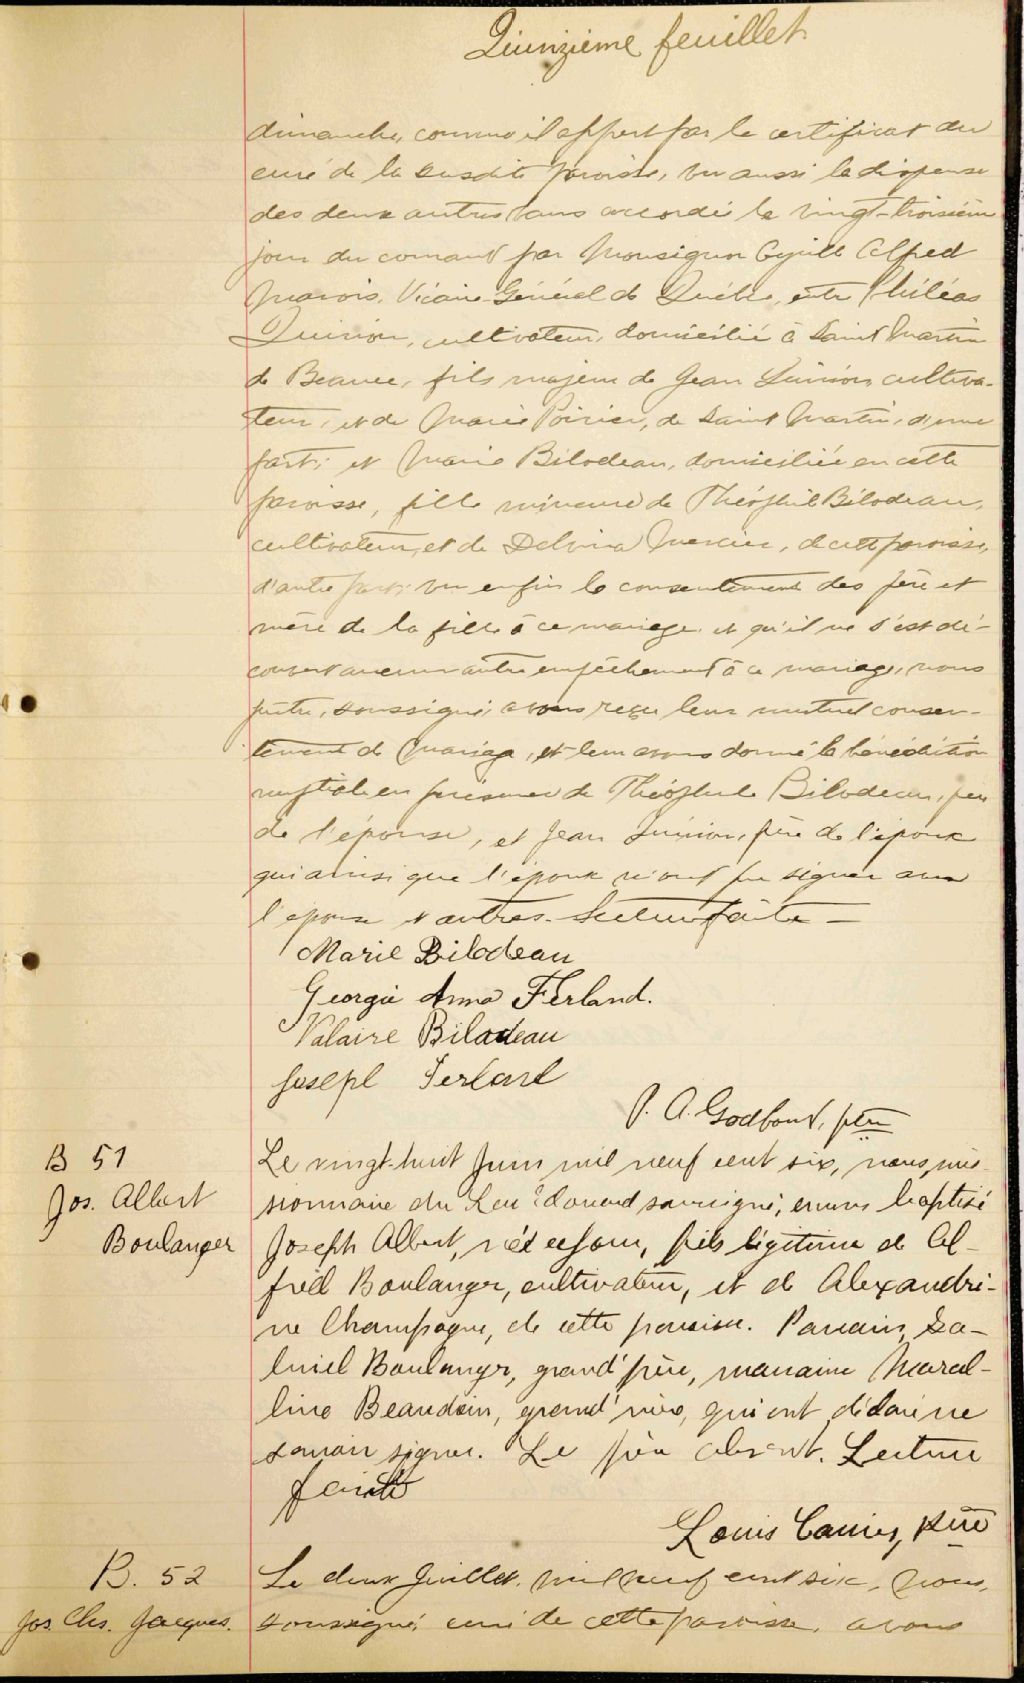 Quinzième feuillet
dimanche, comme il appert par le certificat du
curé de la susdite paroisse, vu aussi la dispense
des deux autres bans accordée le vingt-troisième
jour du courant par Monsignor Cyrille Alfred
Marois, Vicaire Général de Québec, entre Philéas
Quirion, cultivateur, domicilié à Saint Martin
de Beauce, fils majeur de Jean Quirion cultiva-
teur, et de Marie Poirier, de Saint Martin, d'une
part; et Marie Bilodeau, domiciliée en cette
paroisse, fille mineure de Théophile Bilodeau,
cultivateur, et de Delvina Mercier, de cette paroisse,
d'autre part; vu enfin le consentement des père et
mère de la fille à ce mariage et qu'il ne s'est dé-
couvert aucun autre empêchement à ce mariage, nous
prêtre, soussigné, avons reçu leur mutuel consen-
tement de mariage, et leur avons donné la bénédiction
nuptiale en présence de Théophile Bilodeau, père
de l'épouse, et Jean Quirion, père de l'époux
qui ainsi que l'époux n'ont pu signer avec
l'épouse et autres. Lecture faite —
Marie Bilodeau
Georgie Anna Ferland.
Valaire Biladeau
Joseph Ferland
P. A. Godbout, ptre
B 51
Jos. Albert
Boulanger
Le vingt-huit Juin mil neuf cent six, nous, mis-
sionnaire du Lac Edouard soussigné, avons baptisé
Joseph Albert, né ce jour, fils légitime de Al-
fred Boulanger, cultivateur, et de Alexandri-
ne Champagne, de cette paroisse. Parrain, Ga-
briel Boulanger, grand'père, marraine Marcel-
line Beaudoin, grand'mère, qui ont déclaré ne
savoir signer. Le père absent. Lecture
faite
Louis Carrier, ptre
B. 52
Jos. Chs. Jacques.
Le deux Juillet, mil neuf cent six, nous,
soussigné, curé de cette paroisse, avons